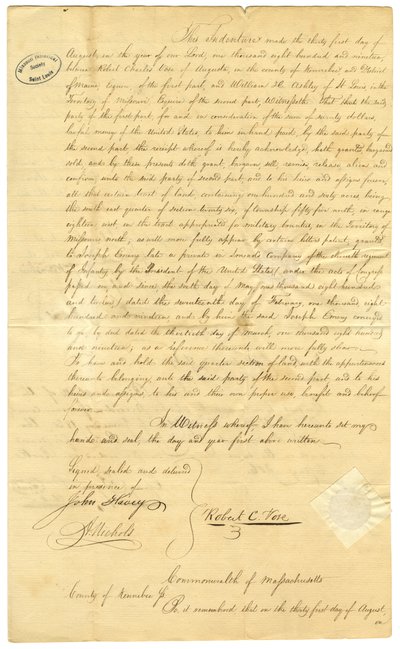 Missouri Historical
Society
Saint Louis
This Indenture made the thirty first day of
August, in the year of our Lord, one thousand eight hundred and nineteen,
between Robert Charles Vose of Augusta, in the county of Kennebec and District
of Maine, Esquire, of the first part, and William H. Ashley of St Louis in the
Territory of Missouri, Esquire of the second part, Witnesseth. That the said
party of the first part, for and in consideration of the sum of seventy dollars,
lawful money of the United States, to him in hand paid, by the said party of
the second part, the receipt whereof is hereby acknowledged, hath granted, bargained
sold, and by these presents doth grant, bargain, sell, remise, release, alien and
confirm, unto the said party of second part and to his heirs and assigns forever,
all that certain tract of land, containing one hundred and sixty acres, being
the south east quarter of section twenty six, of township fifty five north, in range
eighteen west in the tract appropriated for military bounties, in the Territory of
Missouri north; as will more fully appear by certain letters patent, granted
to Joseph Emery late a private in Company of the regiment
of Infantry by the President of the United States (under the acts of Congress
passed on and since the sixth day of May, one thousand eight hundred
and twelve) dated the seventeenth day of February, one thousand eight
hundred and nineteen; and by him the said Joseph Emery conveyed
to by deed dated the thirtieth day of March, one thousand eight hundred
and nineteen; as a reference thereunto will more fully show—
To have and hold the said quarter section of land with the appurtenances
thereunto belonging, unto the said party of the second part, and to his
heirs and assigns, to his and their own proper use, benefit and behoof
forever.
In Witness whereof I have hereunto set my
hand and seal, the day and year first above written
Signed, sealed and delivered
in presence of
John
Nichols
Robert C. Vose
Commonwealth of Massachusetts
County of Kennebec Ss.
Be it remembered that on the thirty first day of August,